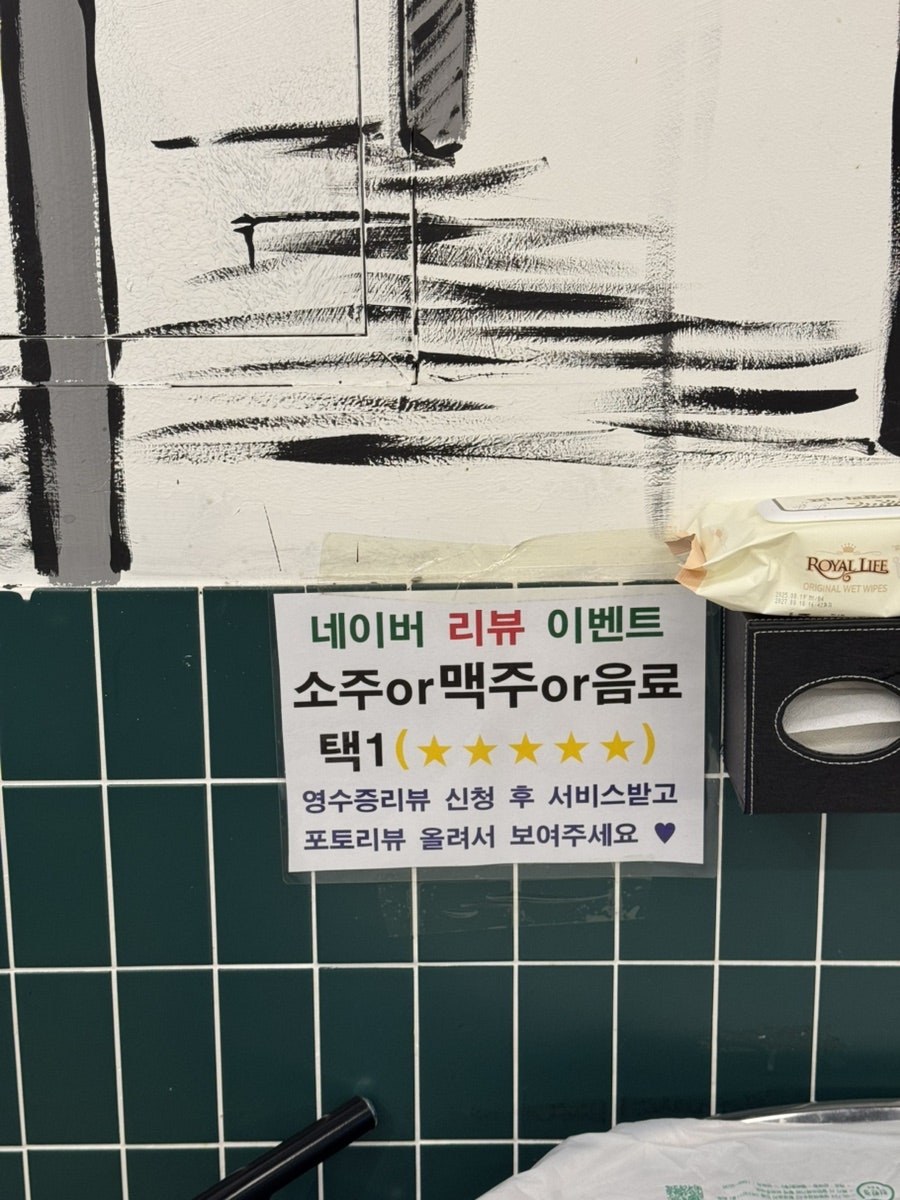 ROYAL LIFE
ORIGINAL WET WIPES
네이버 리뷰 이벤트
소주or맥주or음료
택1(★★★★★)
영수증리뷰 신청 후 서비스받고
포토리뷰 올려서 보여주세요 ♥